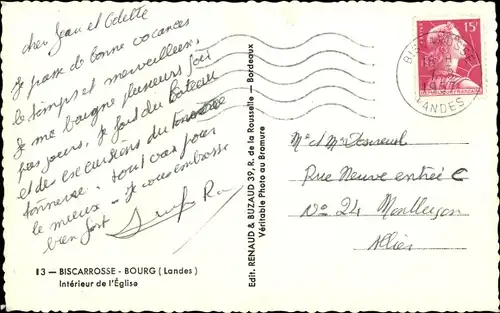 cher Jean et Odette
Je passe de bonne vacances
le temps et merveilleux.
Je me baigne plusieurs fois
par jours. Je fait du bateau
et des excursions du
tonneuse. tout vas pour
le mieux - Je vous embrasse
bien fort
13 — BISCARROSSE - BOURG (Landes)
Intérieur de l'Église
Edit. RENAUD & BUZAUD 39, R. de la Rousselle — Bordeaux
Véritable Photo au Bromure
15F
LANDES
Mr et Me
Rue Neuve entrée C
No 24 Montluçon
Allier